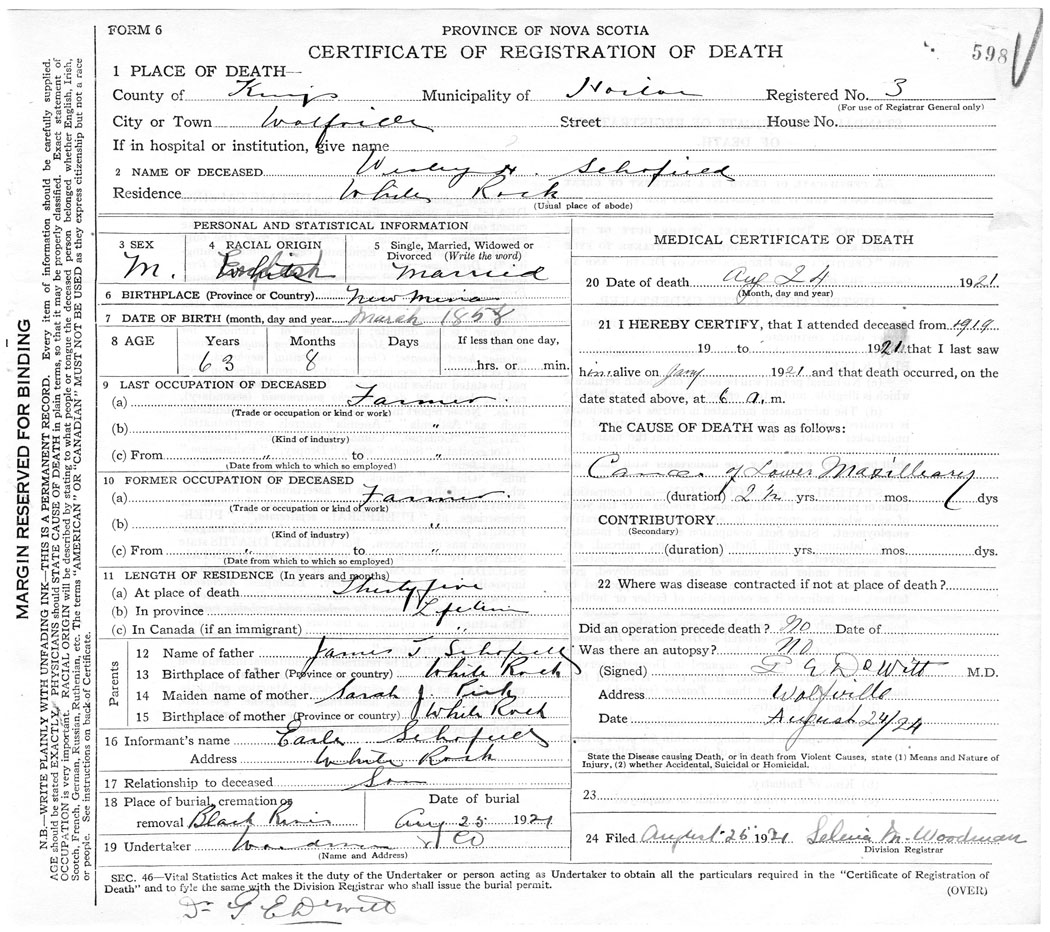 FORM 6
PROVINCE OF NOVA SCOTIA
CERTIFICATE OF REGISTRATION OF DEATH
598
1 PLACE OF DEATH—
County of Kings Municipality of Horton Registered No. 3
(For use of Registrar General only)
City or Town Wolfville Street House No.
If in hospital or institution, give name
2 NAME OF DECEASED Wesley H. Schofield
Residence White Rock
(Usual place of abode)
PERSONAL AND STATISTICAL INFORMATION
3 SEX 4 RACIAL ORIGIN 5 Single, Married, Widowed or
Divorced (Write the word)
M. Married
6 BIRTHPLACE (Province or Country) New Minas
7 DATE OF BIRTH (month, day and year March 1858
8 AGE Years Months Days If less than one day,
63 8 hrs. or min.
9 LAST OCCUPATION OF DECEASED
(a) Farmer
(Trade or occupation or kind or work)
(b) "
(Kind of industry)
(c) From " to "
(Date from which to which so employed)
10 FORMER OCCUPATION OF DECEASED
(a) Farmer
(Trade or occupation or kind of work)
(b) "
(Kind of industry)
(c) From " to "
(Date from which to which so employed)
11 LENGTH OF RESIDENCE (In years and months)
(a) At place of death Thirty five
(b) In province Lifetime
(c) In Canada (if an immigrant) "
Parents
12 Name of father James T Schofield
13 Birthplace of father (Province or country) White Rock
14 Maiden name of mother Sarah J.
15 Birthplace of mother (Province or country) White Rock
16 Informant's name Earle Schofield
Address White Rock
17 Relationship to deceased Son
18 Place of burial, cremation or Date of burial
removal Black River Aug 25 1921
19 Undertaker Woodman & Co
(Name and Address)
MEDICAL CERTIFICATE OF DEATH
20 Date of death Aug 24 1921
(Month, day and year)
21 I HEREBY CERTIFY, that I attended deceased from 1919
19 to 1921 that I last saw
him alive on Jany 1921 and that death occurred, on the
date stated above, at 6 a. m.
The CAUSE OF DEATH was as follows:
Cancer of Lower Maxilleary
(duration) 2½ yrs. mos. dys
CONTRIBUTORY
(Secondary)
(duration) yrs. mos. dys.
22 Where was disease contracted if not at place of death?
Did an operation precede death? No Date of
Was there an autopsy? No
(Signed) G E DeWitt M.D.
Address Wolfville
Date August 24/21
State the Disease causing Death, or in death from Violent Causes, state (1) Means and Nature of
Injury, (2) whether Accidental, Suicidal or Homicidal.
23
24 Filed August 26 1921 Selina M. Woodman
Division Registrar
SEC. 46—Vital Statistics Act makes it the duty of the Undertaker or person acting as Undertaker to obtain all the particulars required in the "Certificate of Registration of
Death" and to fyle the same with the Division Registrar who shall issue the burial permit.
(OVER)
Dr G E DeWitt
MARGIN RESERVED FOR BINDING
N.B.—WRITE PLAINLY WITH UNFADING INK—THIS IS A PERMANENT RECORD. Every item of information should be carefully supplied.
AGE should be stated EXACTLY. PHYSICIANS should STATE CAUSE OF DEATH in plain terms, so that it may be properly classified. Exact statement of
OCCUPATION is very important. RACIAL ORIGIN will be described by stating to what people or tongue the deceased person belonged whether English, Irish,
Scotch, French, German, Russian, Ruthenian, etc. The terms "AMERICAN" OR "CANADIAN" MUST NOT BE USED as they express citizenship but not a race
or people. See instructions on back of Certificate.